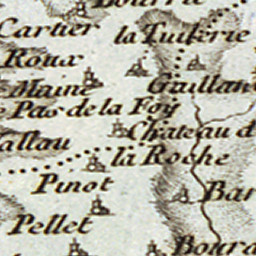 Cartier
la Tuilerie
Roux
Maine
Gaillan
Pas de la Foy
Chateau d
allau
la Roche
Pinot
Bar
Pellet